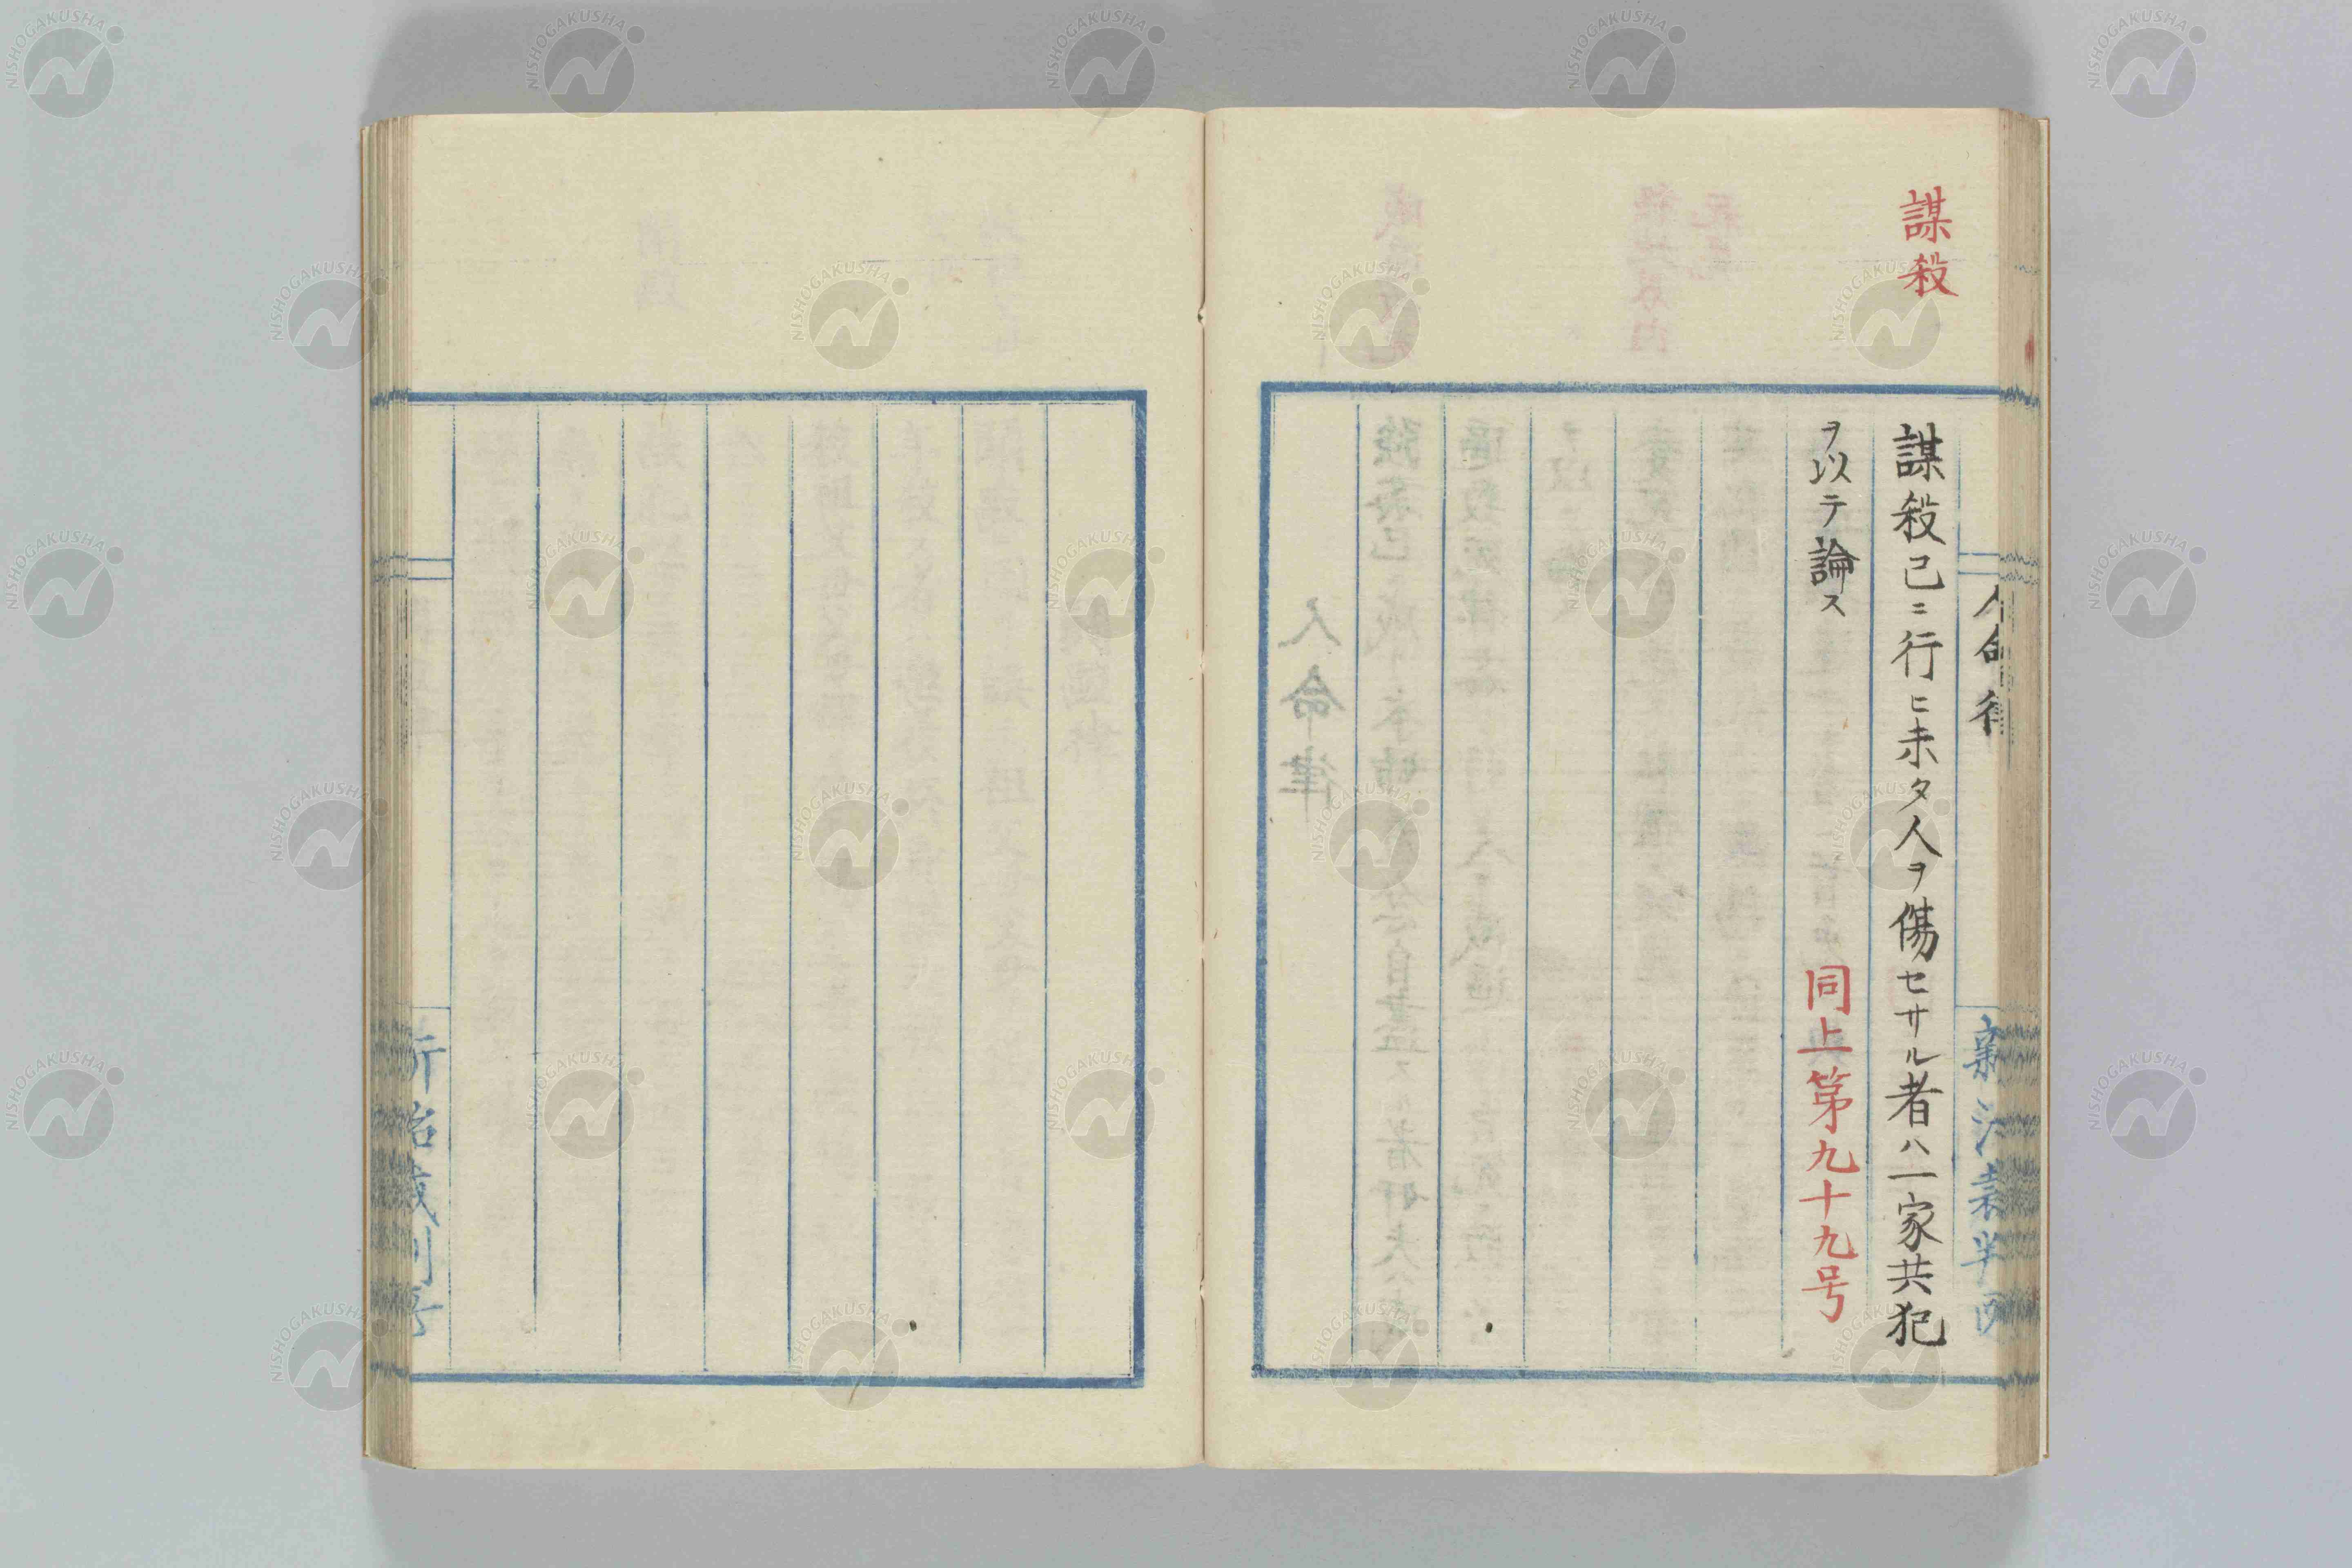 謀殺
人命律
謀殺已ニ行ヒ未タ人ヲ傷セサル者ハ一家共犯
ヲ以テ論ス
同上第九十九号
NISHOGAKUSHA